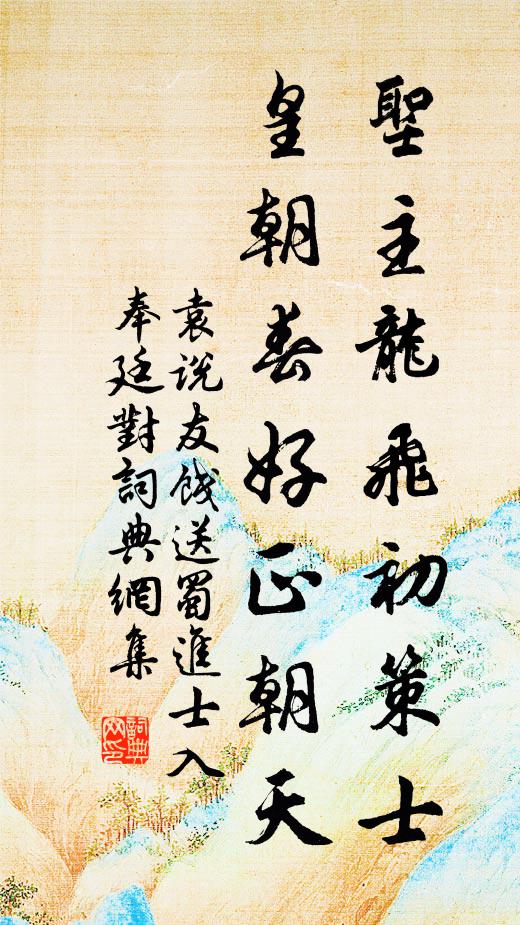 聖主龍飛初策士
皇朝春好正朝天
袁說友餞送蜀進士入
奉廷對詞典網集
詞典
网印